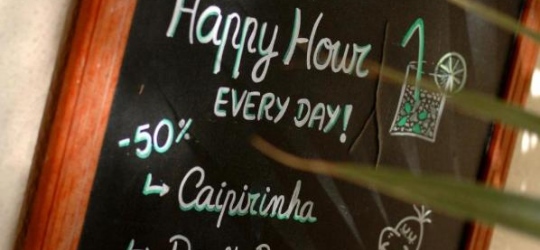 Happy Hour
EVERY DAY!
-50%
Caipirinha